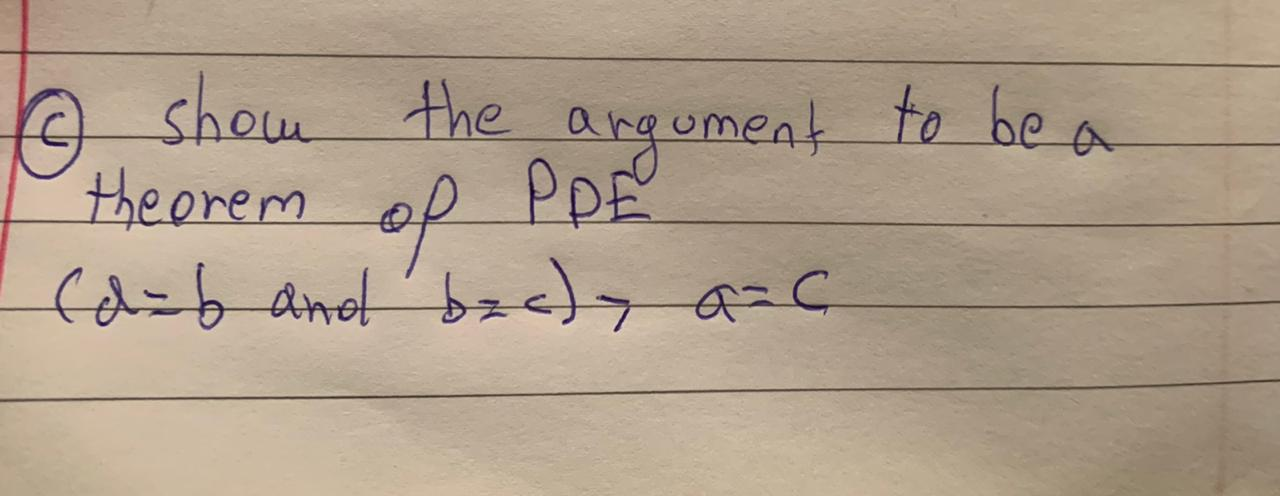 (C) show the argument to be a
theorem of PDE
(a=b and b=c) → a=c